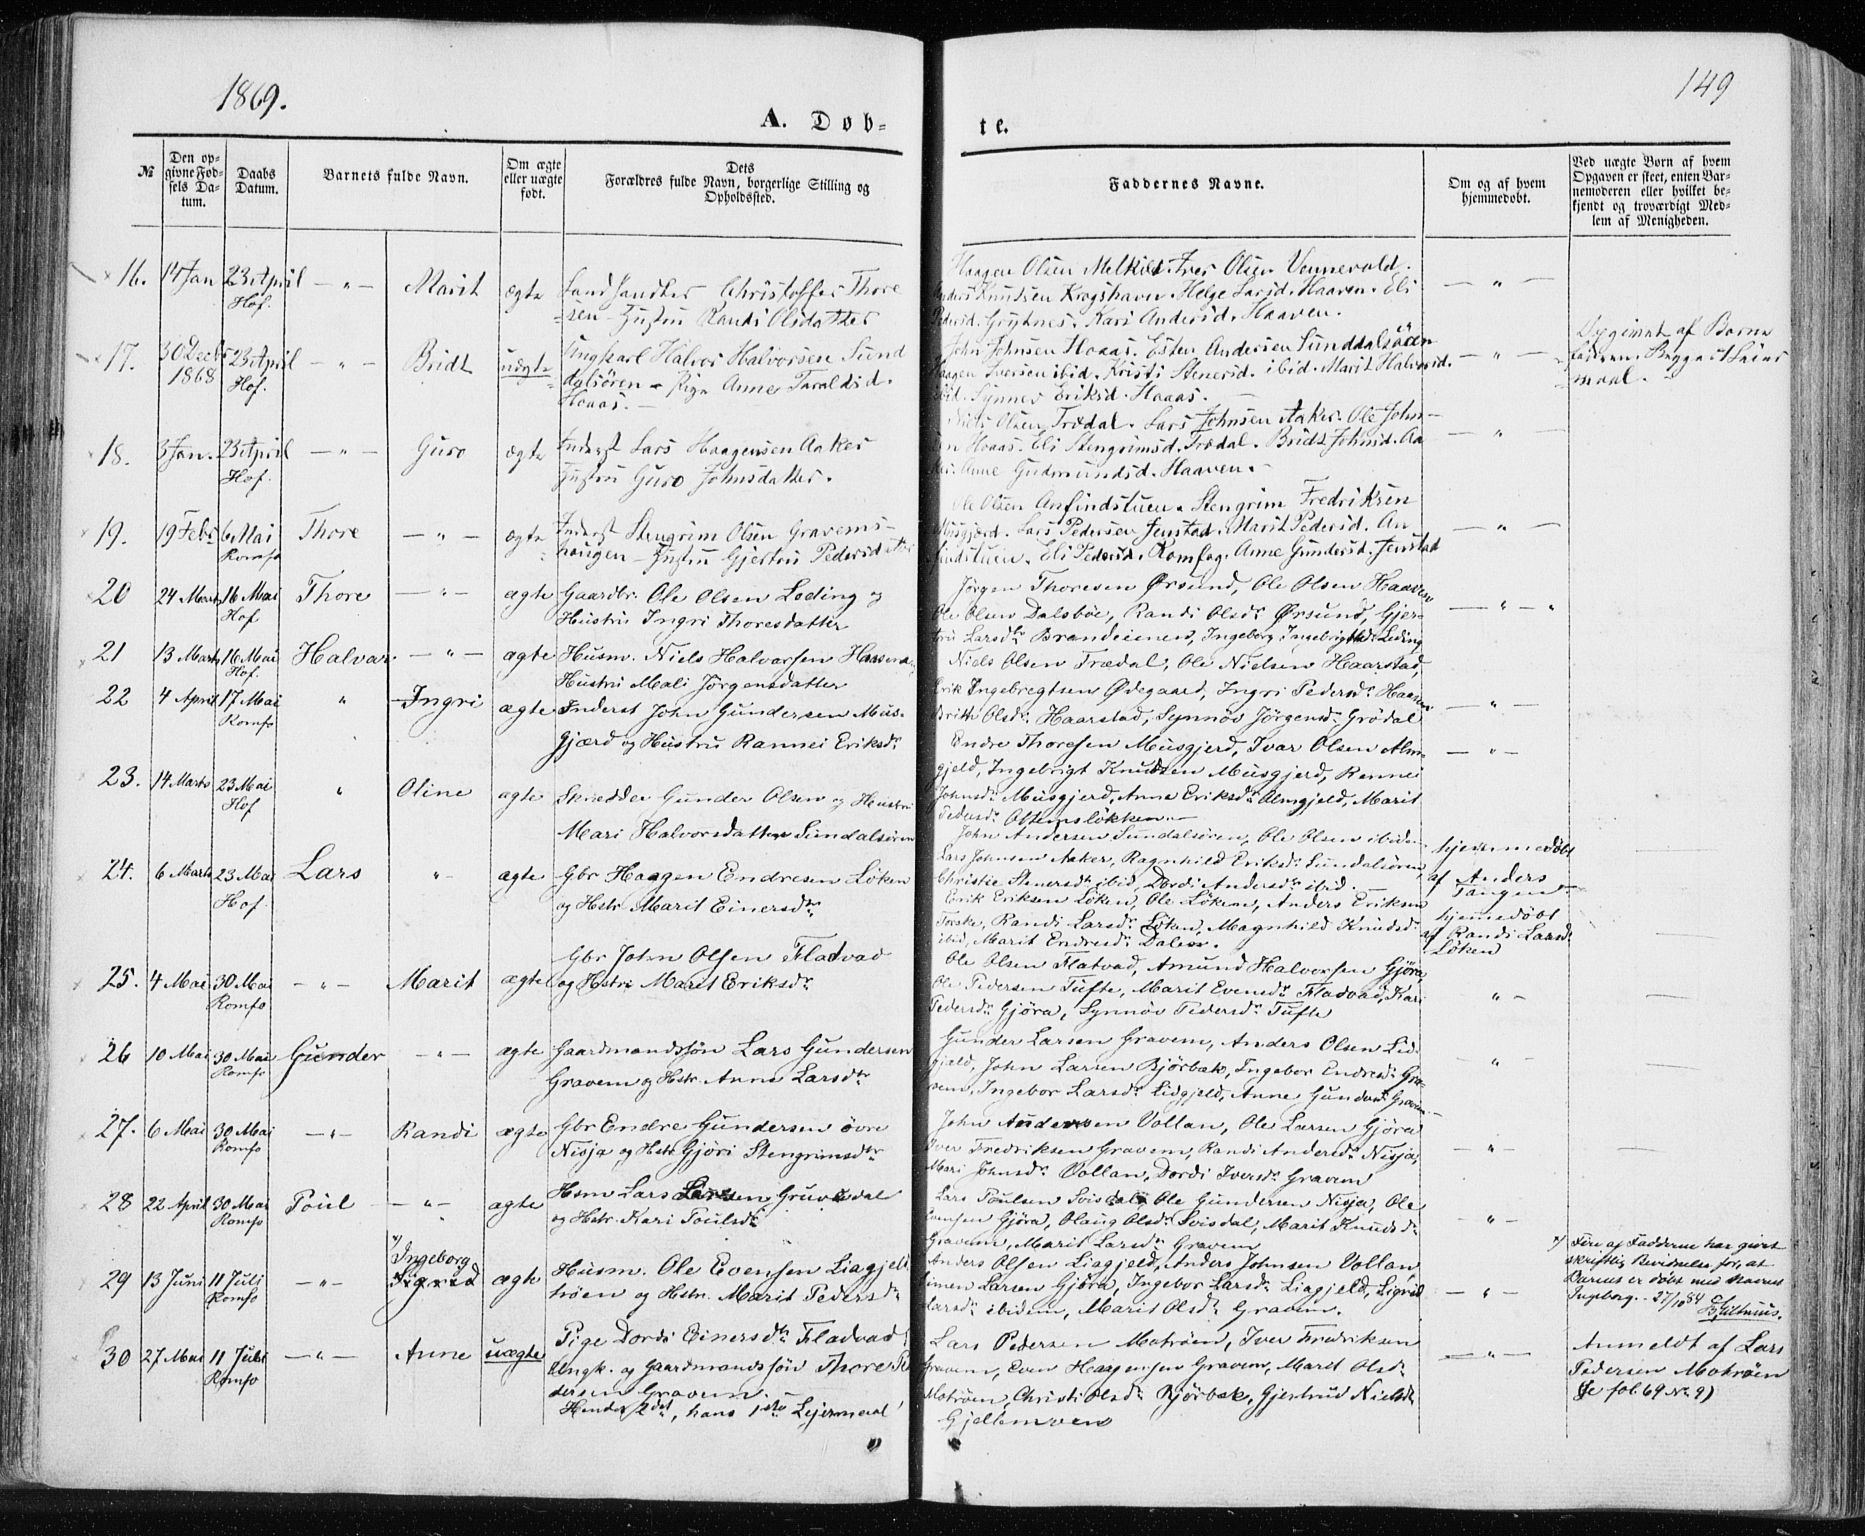 1869.
149
A. Døb-
te.
№
Den op-
givne Fød-
sels Da-
tum.
Daabs
Datum.
Barnets fulde Navn.
Om ægte
eller uægte
født.
Dets
Forældres fulde Navn, borgerlige Stilling og
Opholdssted.
Faddernes Navne.
Om og af hvem
hjemmedøbt.
Ved uægte Børn af hvem
Opgaven er skeet, enten Bar-
nemoderen eller hvilket be-
kjendt og troværdigt Med-
lem af Menigheden.
16. 14 Jan 23 April
Hof.
— " — Marit ægte
Landhandler Christoffer Thore
sen - Hustru Randi Olsdatter
Haagen Olsen Melkild. Iver Olsen Vennevold.
Anders Knudsen Krogshaven. Helge Larsd. Haaven. Eli
Pedersd. Grytnes. Kari Andersd. Haaven.
— " —
17. 30 Decbr
1868
23 April
Hof.
— " — Bridt uægte
Ungkarl Halvor Halvorsen Sund
dalsören - Pige Anne Taraldsd.
Hoaas. —
John Johnsen Hoaas. Esten Andersen Sunddalsören
Haagen Iversen ibid. Kristi Stenersd. ibid. Marit Halvorsd.
ibid. Synnev Eriksd. Hoaas. —
— " —
Opgivet af Barne
faderen. Begges 1 Leier
maal.
18. 3 Jan. 23 April
Hof.
— " — Guro ægte
Inderst Lars Haagensen Aaker
Hustru Guro Johnsdatter.
Niels Olsen Trædal. Lars Johnsen Aaker. Ole John-
sen Hoaas. Eli Stengrimsd. Trædal. Bridt Johnsd. Aa
ker. Anne Gudmundsd. Haaven. —
— " —
19. 19 Febr 6 Mai
Romfo
Thore — " — ægte
Inderst Stengrim Olsen Gravems-
haugen - Hustru Gjertru Pedersdatter
Ole Olsen Anfindstuen. Stengrim Fredriksen
Musgjærd. Lars Pedersen Jenstad. Marit Pedersd. An
findstuen. Eli Pedersd. Romfog. Anne Gundersd. Jenstad
— " —
20 24 Marts 16 Mai
Hof
Thore — " — ægte
Gaardbr. Ole Olsen Loding og
Hustru Ingri Thoresdatter
Jørgen Thoresen Ørsund, Ole Olsen Haaven
Ole Olsen Dalsböe, Randi Olsdr Ørsund, Gjer-
tru Larsdtr Brandeienes, Ingeborg Ingebrigtsdr Loding
— " — "
21 13 Marts 16 Mai
Hof.
Halvar — " — ægte
Husm. Niels Halvorsen Hoasena
Hustru Mali Jörgensdatter
Niels Olsen Trædal, Ole Nielsen Haarstad,
Erik Ingebregtsen Ødegaard, Ingri Pedersdr Hoasena
Britte Olsdr Haarstad, Synnöv Jörgensdr Grödal
— " —
22 4 April 17 Mai
Romfo
" Ingri ægte
Inderst John Gundersen Mus-
gjærd og Hustru Rannei Eriksdr
Endre Thoresen Musgjerd, Ivar Olsen Alm-
gjeld, Ingebrigt Knudsen Musgjerd, Rennei
Johnsdr Musgjerd, Anne Eriksdr Almgjeld, Marit
Pedersdr Ottemslökken —
— " —
23. 14 Marts 23 Mai
Hof
" Oline ægte
Skrædder Gunder Olsen og Hustru
Mari Halvorsdatter Sundalsören
John Andersen Sundalsören, Ole Olsen ibidem
Lars Johnsen Aaker, Ragnhild Eriksdr Sundalsören,
Christie Stenersdr ibid, Dordi Andersdr ibid.
hjemmedöbt
af Anders
Tangen
24. 6 Marts 23 Mai
Hof
Lars " — ægte
Gbr Haagen Endresen Löken
og Hstr Marit Einersdtr
Erik Eriksen Löken, Ole Löken, Anders Eriksen
Torske, Randi Larsdr Löken, Magnhild Knudsdr
ibid, Marit Endresdr Dalen.
hjemedöbt
af Randi Larsdr
Löken
25. 4 Mai 30 Mai
Romfo
— " — Marit ægte
Gbr John Olsen Fladvad
og Hstru Marit Eriksdr
Ole Olsen Flatvad, Amund Halvorsen Gjöra,
Ole Pedersen Tufte, Marit Evensdr Fladvad, Kari
Pedersdr Gjöra, Synnöv Pedersdr Tufte
" —
26 10 Mai 30 Mai
Romfo
Gunder — " — ægte
Gaardmandssön Lars Gundersen
Gravem og Hstr. Anne Larsdtr
Gunder Larsen Gravem, Anders Olsen Lid-
gjeld, John Larsen Björbak, Ingebor Endresdr Gra-
vem, Ingebor Larsdr Lidgjeld, Anne Gundersdr Gravem
— " —
27. 6 Mai 30 Mai
Romfo
— " — Randi ægte
Gbr Endre Gundersen övre
Nisja og Hstr Gjöri Stengrimsdtr
John Andersen Vollan, Ole Larsen Gjöra
Iver Fredriksen Gravem, Randi Andersdr Nisja,
Mari Johnsdr Vollan, Dordi Iversdr Gravem
— " —
28 22 April 30 Mai
Romfo
Poul — " — ægte
Hsm Lars Larsen Gruvedal
og Hstr. Kari Poulsdr
Lars Poulsen Svisdal, Ole Gundersen Nisja, Ole
Evensen Gjöra, Olaug Olsdr Svisdal, Marit Knudsdr
Gravem, Marit Larsdr Gravem
— " —
29 13 Juni 11 Juli
Romfo
— " — Ingeborg
Sigrid ægte
Husm. Ole Evensen Liagjeld
tröen og Hstr. Marit Pedersdr
Anders Olsen Liagjeld, Anders Johnsen Vollan,
Simen Larsen Gjöra, Ingebor Larsdr Liagjeld, Sigrid
Larsdr ibidem, Marit Olsdr Gravem.
— " —
Fire af Fadderne har givet
skriftlig Bevidnelse for, at
Barnet er döbt med Navnet
Ingeborg. 27/10 84
30 27 Mai 11 Juli
Romfo
— " — Anne uægte
Pige Dordi Einersdtr Fladvad
Ungk. og Gaardmandssön Thore Pe
dersen Gravem. —
Hendes 2det, hans 1ste Lejermaal
Lars Pedersen Motröen, Iver Fredriksen
Gravem, Even Haagensen Gravem, Marit Olsdr
Motröen, Christi Olsdr Björbak, Gjertrud Nielsdr
Gjellemoen
— " —
Anmeldt af Lars
Pedersen Motröen
(Se fol 69 No 9)